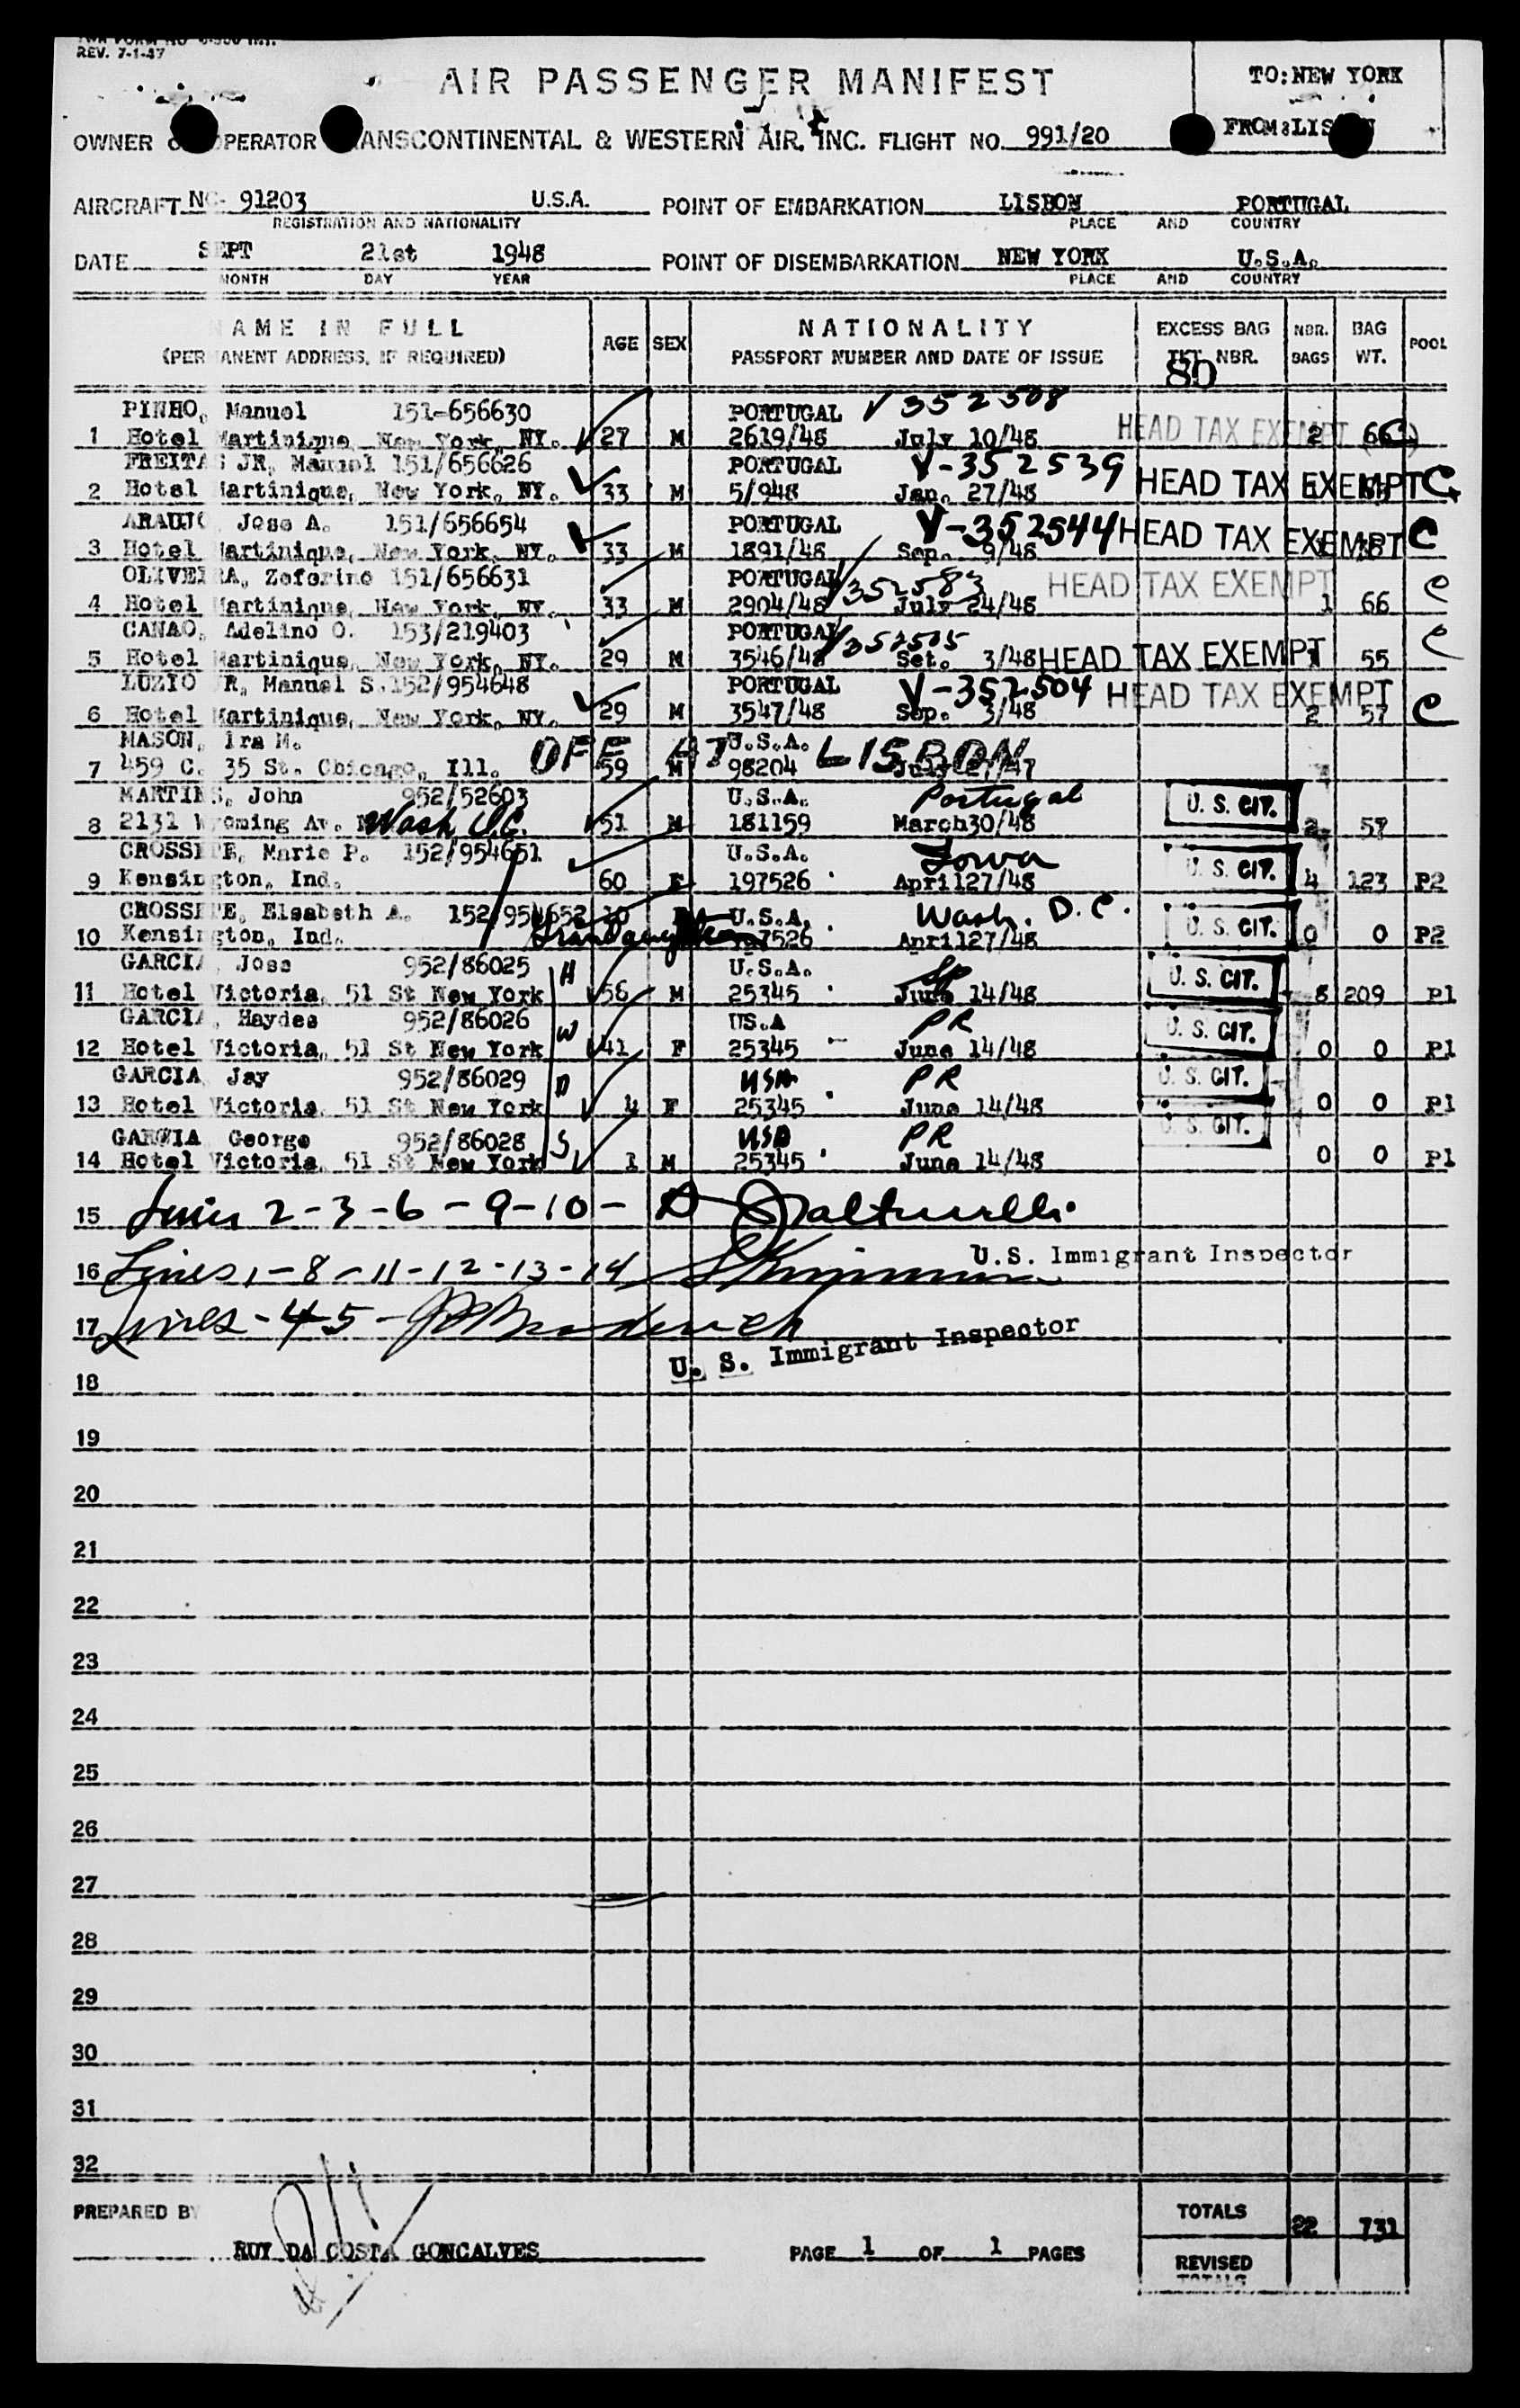 REV. 7-1-47
AIR PASSENGER MANIFEST
TO: NEW YORK
OWNER & OPERATOR TRANSCONTINENTAL & WESTERN AIR, INC. FLIGHT NO. 991/20
FROM: LISBON
AIRCRAFT NC- 91203 U.S.A. POINT OF EMBARKATION LISBON PORTUGAL
REGISTRATION AND NATIONALITY PLACE AND COUNTRY
DATE SEPT 21st 1948 POINT OF DISEMBARKATION NEW YORK U.S.A.
MONTH DAY YEAR PLACE AND COUNTRY
NAME IN FULL AGE SEX NATIONALITY EXCESS BAG NBR. BAG POOL
(PERMANENT ADDRESS, IF REQUIRED) PASSPORT NUMBER AND DATE OF ISSUE TKT. NBR. BAGS WT.
80
PINHO, Manuel 151-656630 PORTUGAL V 352508
1 Hotel Martinique, New York, NY. 27 M 2619/48 July 10/48 HEAD TAX EXEMPT 2 66 C
FREITAS JR, Manuel 151/656626 PORTUGAL V-352539
2 Hotel Martinique, New York, NY. 33 M 5/948 Jan. 27/48 HEAD TAX EXEMPT C
ARAUJO, Jose A. 151/656654 PORTUGAL V-352544
3 Hotel Martinique, New York, NY. 33 M 1891/48 Sep. 9/48 HEAD TAX EXEMPT C
OLIVEIRA, Zeferino 151/656631 PORTUGAL V352583
4 Hotel Martinique, New York, NY. 33 M 2904/48 July 24/48 HEAD TAX EXEMPT 1 66 C
CANAO, Adelino O. 153/219403 PORTUGAL V352505
5 Hotel Martinique, New York, NY. 29 M 3546/48 Set. 3/48 HEAD TAX EXEMPT 55 C
LUZIO JR, Manuel S. 152/954648 PORTUGAL V-352504
6 Hotel Martinique, New York, NY. 29 M 3547/48 Sep. 3/48 HEAD TAX EXEMPT 2 57 C
MASON, Ira M. OFF AT LISBON U.S.A.
7 459 C. 35 St. Chicago, Ill. 59 M 98204
MARTINS, John 952/52603 U.S.A. Portugal
8 2131 Wyoming Av. Wash D.C. 51 M 181159 March30/48 U. S. CIT. 2 57
CROSSETE, Marie P. 152/954651 U.S.A. Iowa
9 Kensington, Ind. 60 F 197526 April27/48 U. S. CIT. 4 123 P2
CROSSETE, Elsabeth A. 152/954652 10 U.S.A. Wash. D.C.
10 Kensington, Ind. Grandaughter April27/48 U. S. CIT. 0 0 P2
GARCIA, Jose 952/86025 H U.S.A. Sp
11 Hotel Victoria, 51 St New York 56 M 25345 June 14/48 U. S. CIT. 8 209 P1
GARCIA, Haydee 952/86026 W US.A PR
12 Hotel Victoria, 51 St New York 41 F 25345 June 14/48 U. S. CIT. 0 0 P1
GARCIA Jay 952/86029 D USA PR
13 Hotel Victoria, 51 St New York 4 F 25345 June 14/48 U. S. CIT. 0 0 P1
GARCIA George 952/86028 S USA PR
14 Hotel Victoria, 51 St New York 1 M 25345 June 14/48 U. S. CIT. 0 0 P1
15 Lines 2-3-6-9-10-
16 Lines 1-8-11-12-13-14 U.S. Immigrant Inspector
17 Lines-4-5-
U. S. Immigrant Inspector
18
19
20
21
22
23
24
25
26
27
28
29
30
31
32
PREPARED BY TOTALS 22 731
RUY DA COSTA GONCALVES PAGE 1 OF 1 PAGES REVISED
TOTALS